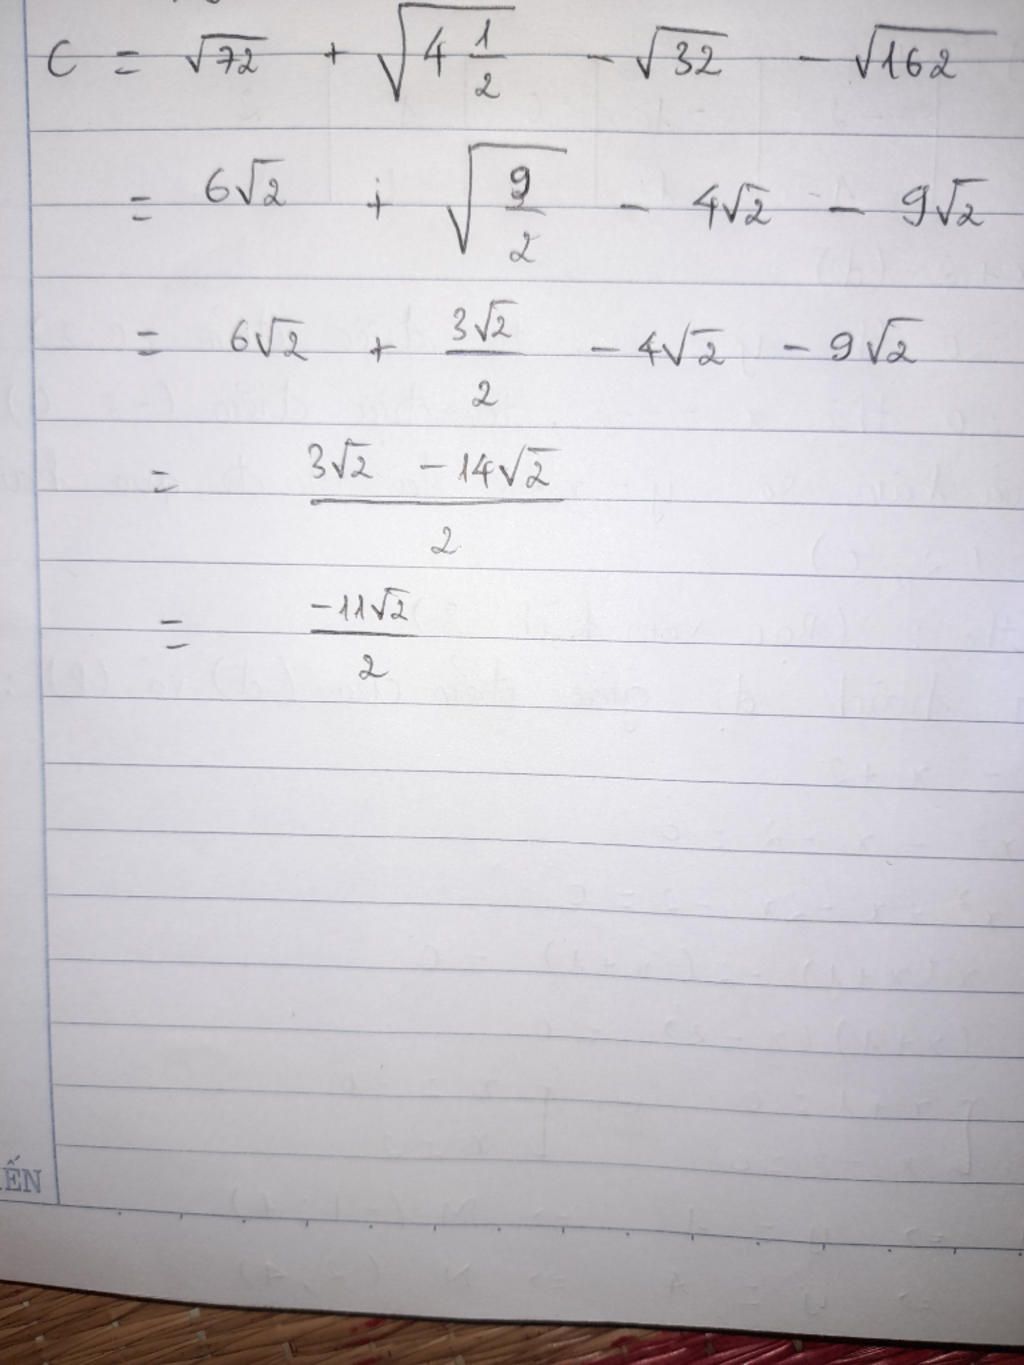 C = √72 + √(4 1/2) - √32 - √162
= 6√2 + √(9/2) - 4√2 - 9√2
= 6√2 + 3√2/2 - 4√2 - 9√2
= (3√2 - 14√2)/2
= -11√2/2
ẾN